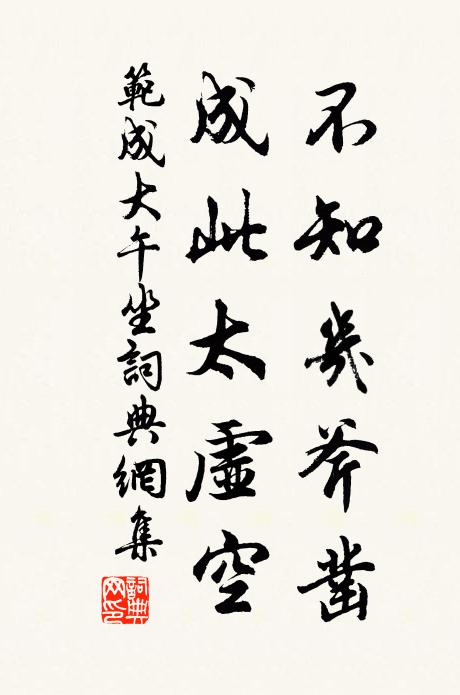 不知幾斧鑿
成此太虛空
範成大午坐詞典網集
詞典網印